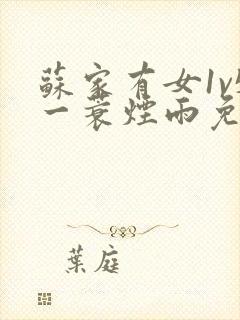 蘇家有女1v
一蓑煙雨免
葉庭